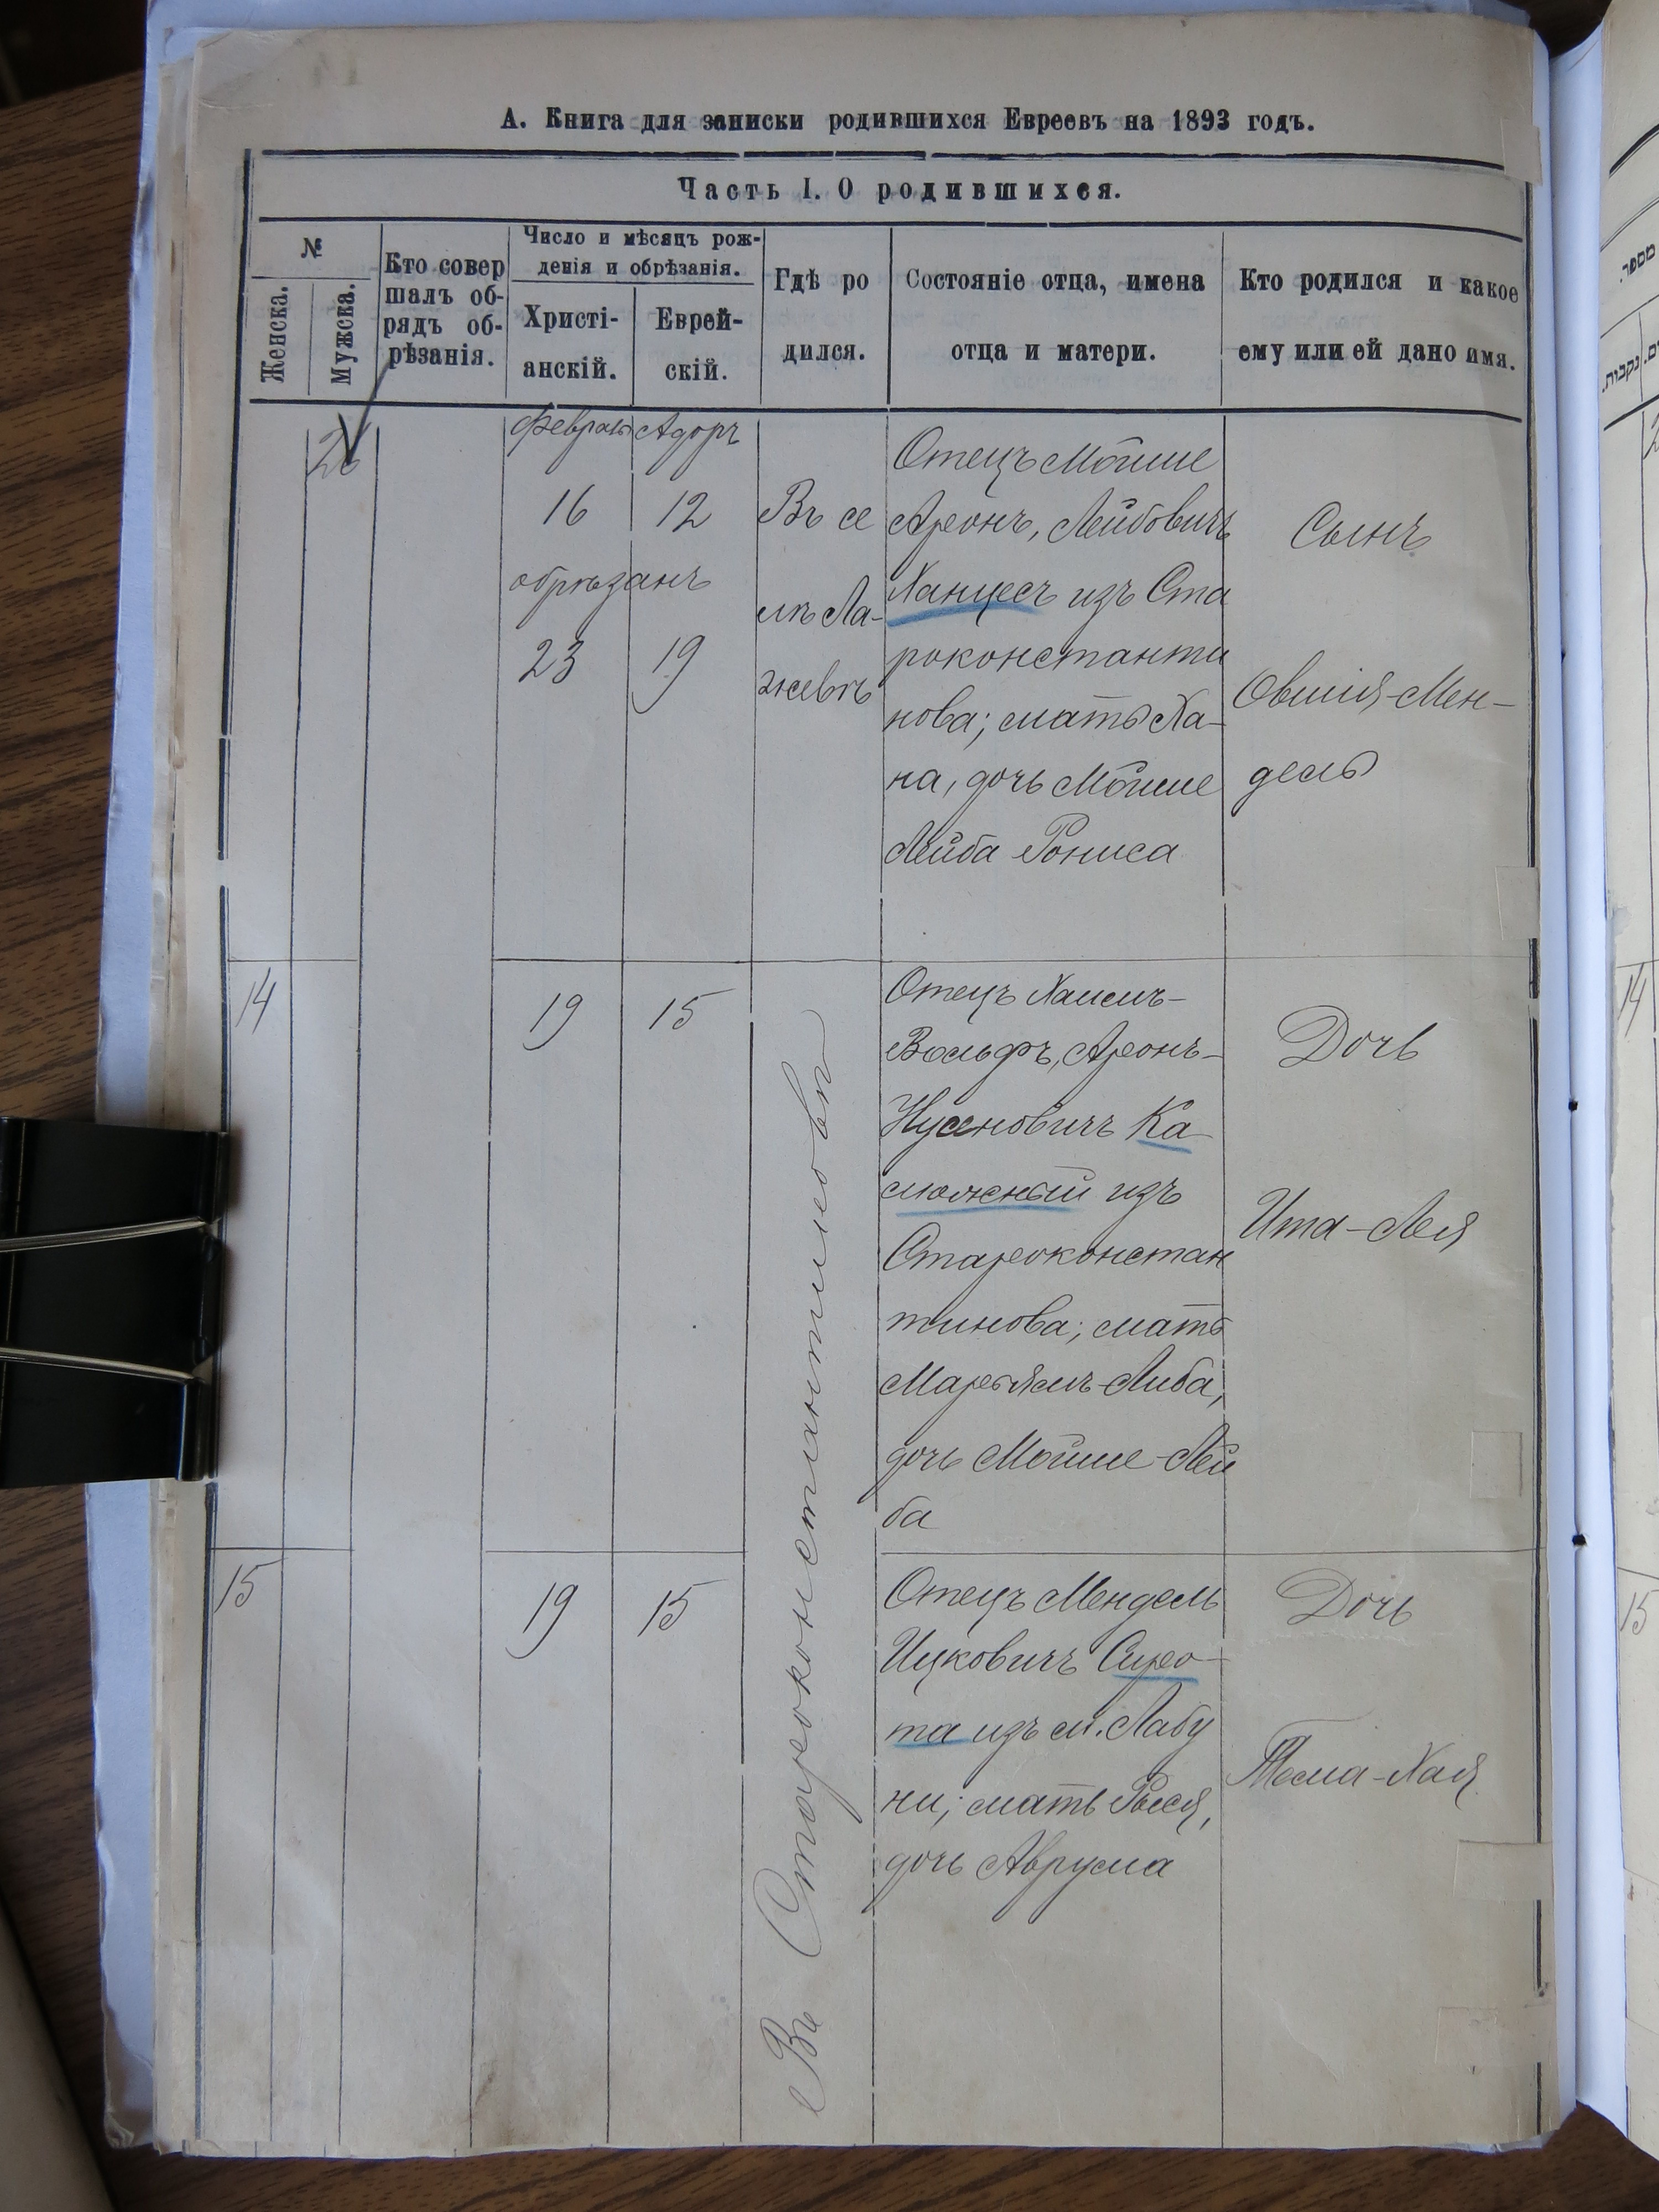 А. Книга для записки родившихся Евреевъ на 1893 годъ.
Часть I. О родившихся.
№
Женска.
Мужска.
Кто совер
шалъ об-
рядъ об-
рѣзанія.
Число и мѣсяцъ рож-
денія и обрѣзанія.
Христі-
анскій.
Еврей-
скій.
Гдѣ ро
дился.
Состояніе отца, имена
отца и матери.
Кто родился и какое
ему или ей дано имя.
Адоръ
16
12
обрѣзанъ
23
19
Въ се
лѣ Ла-
жевѣ
Отецъ Мойше
Аронъ, Лейбовичъ
Ханцесъ изъ Ста
роконстанти
нова; мать Ха-
на, дочь Мойше
Лейба Рониса
Сынъ
Овшія-Мен-
дель
14
19
15
Въ Староконстантиновѣ
Отецъ Хаимъ-
Вольфъ, Аронъ-
Нусеновичъ Ка
изъ
Староконстан
тинова; мать
Марьямъ-Либа,
дочь Мойше-Лей
ба
Дочь
Ита-Лея
15
19
15
Отецъ Мендель
Ицковичъ Сиро-
та изъ м. Лабу
ни; мать Рыся,
дочь Аврума
Дочь
Тема-Хая
מספר.
נקבות.
14
15